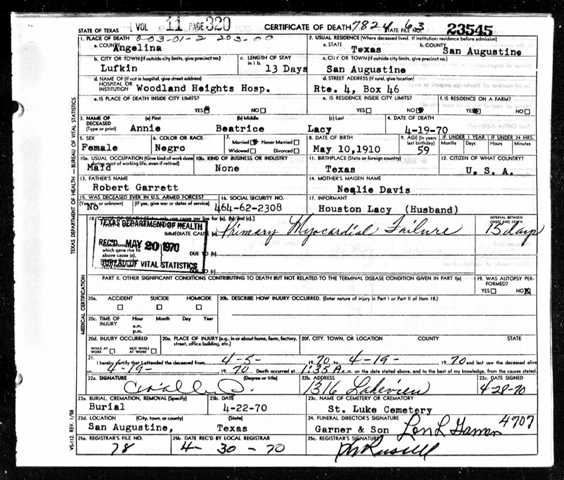 VOL 11 PAGE 320
STATE OF TEXAS CERTIFICATE OF DEATH 7824 63 23545
1. PLACE OF DEATH 203-00
2. USUAL RESIDENCE (Where deceased lived. If institution: residence before admission)
a. COUNTY Angelina
a. STATE Texas b. COUNTY San Augustine
b. CITY OR TOWN (If outside city limits, give precinct no.) Lufkin
c. LENGTH OF STAY 13 Days
c. CITY OR TOWN (If outside city limits, give precinct no.) San Augustine
d. NAME OF (If not in hospital, give street address) HOSPITAL OR INSTITUTION Woodland Heights Hosp.
d. STREET ADDRESS (If rural, give location) Rte. 4, Box 46
e. IS PLACE OF DEATH INSIDE CITY LIMITS? YES NO
e. IS RESIDENCE INSIDE CITY LIMITS? YES NO
f. IS RESIDENCE ON A FARM? YES NO
3. NAME OF DECEASED (Type or print) (a) First Annie (b) Middle Beatrice (c) Last Lacy
4. DATE OF DEATH 4-19-70
5. SEX Female
6. COLOR OR RACE Negro
7. Married Never Married Widowed Divorced
8. DATE OF BIRTH May 10,1910
9. AGE 59
IF UNDER 1 YEAR Months Days
IF UNDER 24 HRS. Hours Min.
10a. USUAL OCCUPATION (Give kind of work done Maid
10b. KIND OF BUSINESS OR INDUSTRY None
11. BIRTHPLACE (State or foreign country) Texas
12. CITIZEN OF WHAT COUNTRY? U. S. A.
13. FATHER'S NAME Robert Garrett
14. MOTHER'S MAIDEN NAME Nealie Davis
15. WAS DECEASED EVER IN U.S. ARMED FORCES? No
16. SOCIAL SECURITY NO. 464-62-2308
17. INFORMANT Houston Lacy (Husband)
TEXAS DEPARTMENT OF HEALTH
REC'D MAY 20 1970
BUREAU OF VITAL STATISTICS
Primary Myocardial Failure 15 days
PART II. OTHER SIGNIFICANT CONDITIONS CONTRIBUTING TO DEATH BUT NOT RELATED TO THE TERMINAL DISEASE CONDITION GIVEN IN PART I(a)
19. WAS AUTOPSY PERFORMED? YES NO
20a. ACCIDENT SUICIDE HOMICIDE
20b. DESCRIBE HOW INJURY OCCURRED. (Enter nature of injury in Part I or Part II of Item 18.)
20c. TIME OF INJURY Hour Month Day Year a.m. p.m.
20d. INJURY OCCURRED WHILE AT WORK NOT WHILE AT WORK
20e. PLACE OF INJURY (e.g. in or about home, farm, factory, street, office building, etc.)
20f. CITY, TOWN, OR LOCATION COUNTY STATE
21. I hereby certify that I attended the deceased from 4-5- 1970 to 4-19- 1970 and last saw the deceased alive
4-19- 1970 Death occurred at 1:35 A.m. on the date stated above, and to the best of my knowledge, from the causes stated.
22a. SIGNATURE (Degree or title)
22b. ADDRESS 1316 Lakeview
22c. DATE SIGNED 4-28-70
23a. BURIAL, CREMATION, REMOVAL (Specify) Burial
23b. DATE 4-22-70
23c. NAME OF CEMETERY OR CREMATORY St. Luke Cemetery
23d. LOCATION (City, town, or county) (State) San Augustine, Texas
24. FUNERAL DIRECTOR'S SIGNATURE Garner & Son 4707
25a. REGISTRAR'S FILE NO. 78
25b. DATE REC'D BY LOCAL REGISTRAR 4-30-70
25c. REGISTRAR'S SIGNATURE
TEXAS DEPARTMENT OF HEALTH — BUREAU OF VITAL STATISTICS
MEDICAL CERTIFICATION